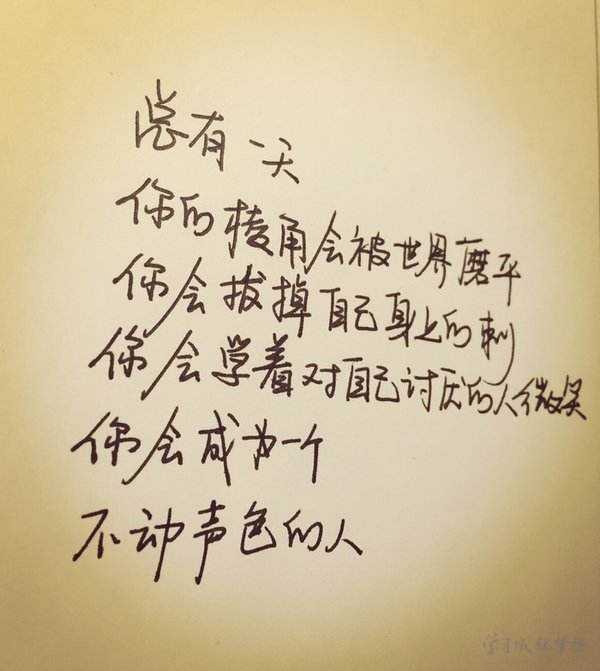 总有一天
你的棱角会被世界磨平
你会拔掉自己身上的刺
你会学着对自己讨厌的人微笑
你会成为一个
不动声色的人